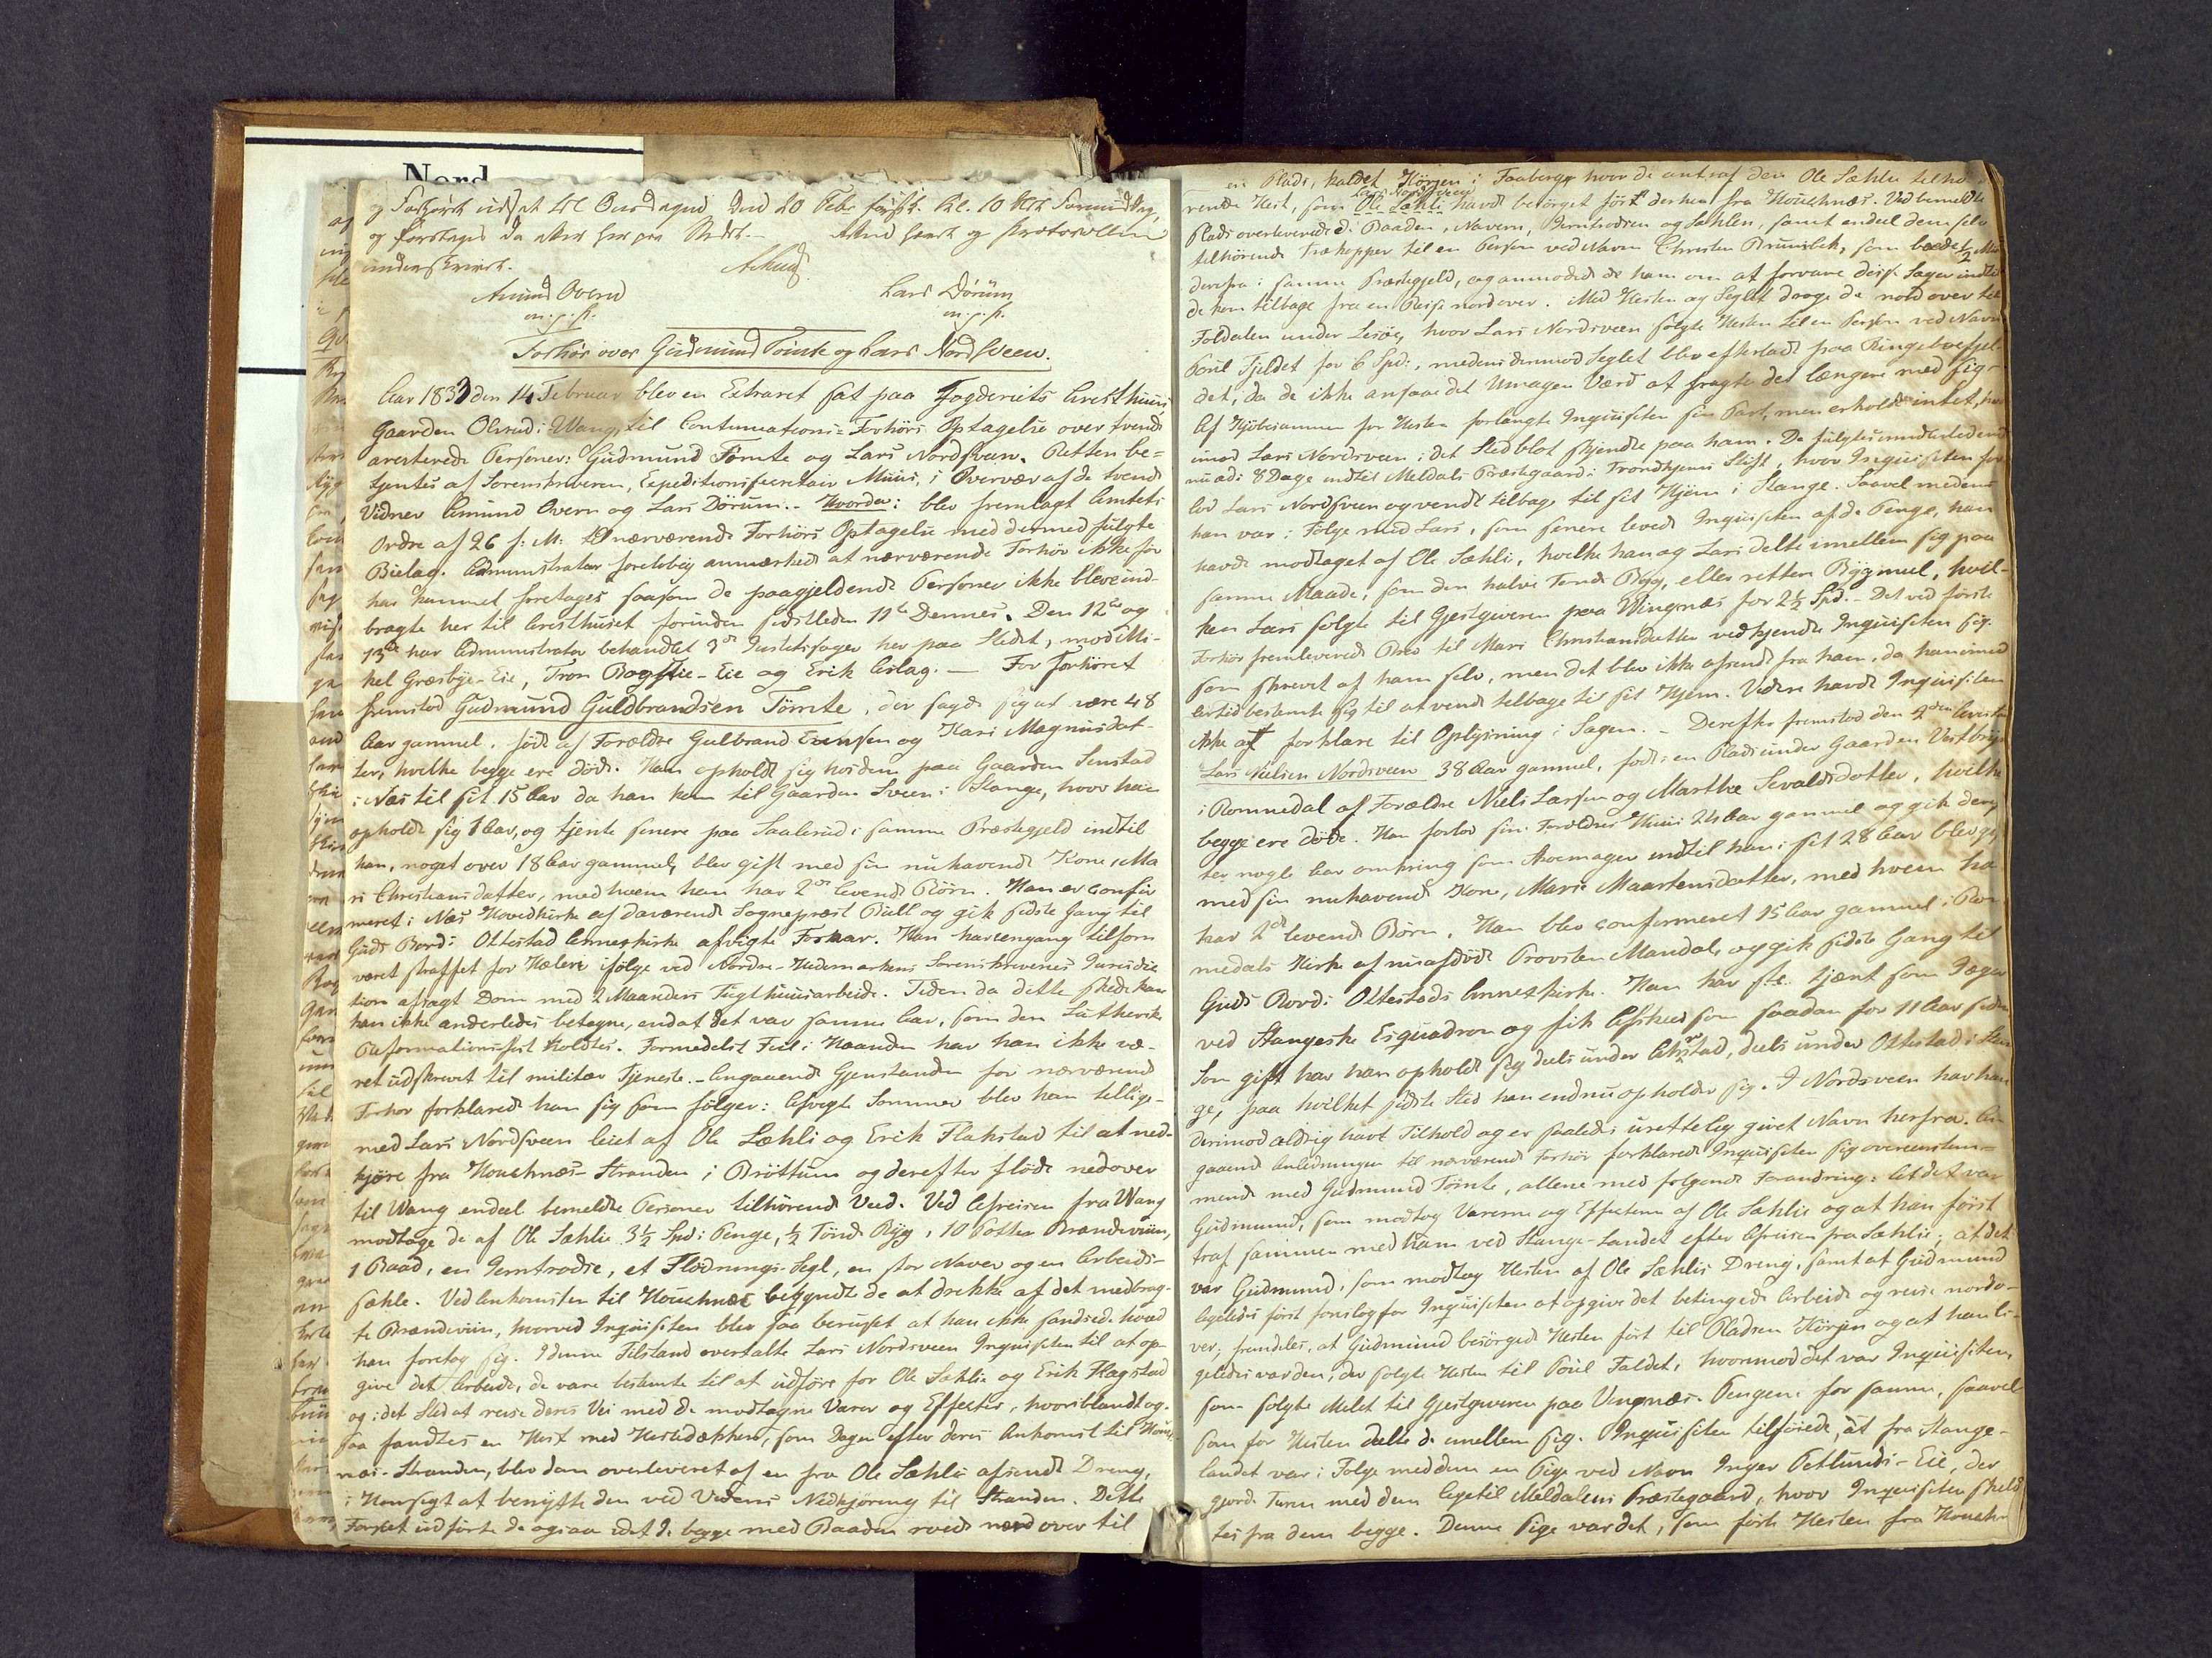 Nord
og Forhøret udsat til Onsdagen den 20 Febr. førstk. Kl. 10 Slet Formiddag,
og foretages da atter her paa Stedet. Retten hævet og Protocollen
underskrevet.
Amund Overn Lars Dörum
m. f. P. m. f. P.
Forhör over Gudmund Tömte og Lars Nordsveen.
Aar 1833 den 14 Februar blev en Extraret sat paa Fogderiets Aresthuus
Gaarden Olsrud i Wang, til Continuations-Forhörs Optagelse over tvende
aresterede Personer: Gudmund Tömte og Lars Nordsveen. Retten be-
tjentes af Sorenskriveren, Expeditionssecretair Muus, i Overvær af de tvende
Vidner Amund Overn og Lars Dörum. - Hvorda: blev fremlagt Amtets
Ordre af 26 f: M: til nærværende Forhörs Optagelse med dermed fulgte
Bielag. Administrator foreløbig anmærkede at nærværende Forhör ikke för
har kunnet foretages saasom de paagjeldende Personer ikke bleve ind-
bragte her til Aresthuset forinden sidstleden 11te Dennes. Den 12te og
13de har Administrator behandlet 3de Justitssager her paa Stedet, mod Mi-
kel Græsbye-Eie, Tron Bogstie-Eie og Erik Aslag. - For Forhöret
fremstod Gudmund Guldbrandsen Tömte, der sagde sig at være 48
Aar gammel, födt af Forældre Gulbrand Evensen og Kari Magnusdat-
ter, hvilke begge ere döde. Han opholdt sig hos dem paa Gaarden Senstad
i Næs til sit 15 Aar da han kom til Gaarden Sveen i Stange, hvor han
opholdt sig 1 Aar, og tjente senere paa Saalerud i samme Præstegjeld indtil
han, noget over 18 Aar gammel, blev gift med sin nuhavende Kone, Ma
ri Christiansdatter, med hvem han har 2de levende Börn. Han er confir
meret i Næs Hovedkirke af daværende Sognepræst Bull og gik sidste Gang til
Guds Bord i Ottestad Annexkirke afvigte Foraar. Han har eengang tilforn
været straffet for Hæleri ifølge ved Nordre-Hedemarkens Sorenskriveries Jurisdic
tion afsagt Dom med 2 Maaneders Tugthuusarbeide. Tiden da dette skede kan
han ikke anderledes betegne, end at det var samme Aar, som den Lutherske
Reformationsfest holdtes. Formedelst Feil i Haanden har han ikke væ-
ret udskrevet til militær Tjeneste. - Angaaende Gjenstanden for nærværende
Forhør forklarede han sig som følger: Afvigte Sommer blev han tillige-
med Lars Nordsveen leiet af Ole Sæhli og Erik Flakstad til at ned-
kjöre fra Houchnæs-Stranden i Bröttum og derefter flöde nedover
til Wang endeel bemeldte Personer tilhörende Ved. Ved Afreisen fra Wang
modtoge de af Ole Sæhlie 3½ Spd: Penge, ½ Tönde Byg, 10 Potter Brændeviin,
1 Baad, en Jerntrodse, et Flødnings-Segl, en stor Naver og en Arbeids-
sæhle. Ved Ankomsten til Houchnæs begyndte de at drikke af det medbrag-
te Brændeviin, hvorved Inquisiten blev saa beruset at han ikke sandsede hvad
han foretog sig. I denne Tilstand overtalte Lars Nordsveen Inquisiten til at op-
give det Arbeide, de vare bestemte til at udføre for Ole Sæhlie og Erik Flagstad
og i det Sted at reise deres Vei med de modtagne Varer og Effecter, hvoriblandt og-
saa fandtes en Hest med Hestedækken, som Dagen efter deres Ankomst til Houch-
næs-Stranden, blev dem overleveret af en fra Ole Sæhlie afsendt Dreng,
i Hensigt at benytte den ved Vedens Nedkjöring til Stranden. Dette
Forsæt udførte de ogsaa idet de begge med Baaden roede nordover til
en Plads, kaldet Körjen i Faaberg, hvor de antraf den Ole Sæhlie tilhö-
Lars Nordsveen
rende Hest, som Ole Sæhli havde besörget fört derhen fra Houchnæs. Ved bemeldte
Plads overleverede de Baaden, Naveren, Jerntrodsen og Sæhlen, samt endeel dem selv
tilhörende Trækopper til en Person ved Navn Christen Brunslek, som boede ½ Miil
derfra i samme Præstegjeld, og anmodede de ham om at forvare disse Sager indtil
de kom tilbage fra en Reise nordover. Med Hesten og Seglet droge de nordover til
Foldalen under Lesöe, hvor Lars Nordsveen solgte Hesten til en Person ved Navn
Poul Fjeldet for 6 Spd:, medens derimod Seglet blev efterladt paa Ringeboefjel-
det, da de ikke ansaae det Umagen Værd at fragte det længere med sig. -
Af Kjöbesummen for Hesten forlangte Inquisiten sin Part, men erholdt intet, hvor-
imod Lars Nordsveen i det Sted blot skjendte paa ham. De fulgtes imidlertid end
nu ad i 8 Dage indtil Meldals Præstegaard i Trondhjems Stift, hvor Inquisiten for
lod Lars Nordsveen og vendte tilbage til sit Hjem i Stange. Saavel medens
han var i Følge med Lars, som senere levede Inquisiten af de Penge, han
havde modtaget af Ole Sæhli, hvilke han og Lars delte imellem sig paa
samme Maade, som den halve Tönde Byg, eller retter Bygmeel, hvil-
ken Lars solgte til Gjestgiveren paa Wingnæs for 2½ Spd. - Det ved förste
Forhör fremleverede Brev til Mari Christiansdatter vedkjendte Inquisiten sig
som skrevet af ham selv, men det blev ikke afsendt fra ham, da han imid
lertid bestemte sig til at vende tilbage til sit Hjem. Videre havde Inquisiten
ikke at forklare til Oplysning i Sagen. - Derefter fremstod den 2den Arestant
Lars Nielsen Nordsveen 38 Aar gammel, födt i en Plads under Gaarden Vestbye
i Romnedal af Forældre Niels Larsen og Marthe Sevaldsdatter, hvilke
begge ere döde. Han forlod sin Forældres Huus 24 Aar gammel og gik deref-
ter nogle Aar omkring som Skoemager indtil han i sit 28 Aar blev gift
med sin nuhavende Kone, Marie Maartensdatter, med hvem han
har 2de levende Börn. Han blev confirmeret 15 Aar gammel i Rom-
medals Kirke af nu afdöde Provsten Mandal, og gik sidste Gang til
Guds Bord i Ottestads Annexkirke. Han har tjent som Jæger
ved Stangeske Esquadron og fik Afskeed som saadan for 11 Aar siden
Som gift har han opholdt sig deels under Ahrstad, deels under Ottestad i Stan
ge, paa hvilket sidste Sted han endnu opholder sig. I Nordsveen har han
derimod aldrig havt Tilhold og er saaledes urettelig givet Navn herfra. An
gaaende Anledningen til nærværende Forhör forklarede Inquisiten sig overeenstem-
mende med Gudmund Tömte, allene med følgende Forandring: At det var
Gudmund, som modtog Varerne og Effecterne af Ole Sæhlie og at han först
traf sammen med ham ved Stange-Landet efter Afreisen fra Sæhlie; at det
var Gudmund, som modtog Hesten af Ole Sæhlis Dreng, samt at Gudmund
ligeledes först foreslog for Inquisiten at opgive det betingede Arbeide og reise nordo-
ver; fremdeles, at Gudmund besörgede Hesten fört til Pladsen Körjen og at han li-
geledes var den, der solgte Hesten til Poul Faldet, hvorimod det var Inquisiten,
som solgte Melet til Gjestgiveren paa Vingnæs. Pengene for samme, saavel
som for Hesten deelte de imellem sig. Inquisiten tilföiede, at fra Stange-
landet var i Følge med dem en Pige ved Navn Inger Petlunds-Eie, der
gjorde Turen med dem ligetil Meldalens Præstegaard, hvor Inquisiten skild
tes fra dem begge. Denne Pige var det, som förte Hesten fra Houchn